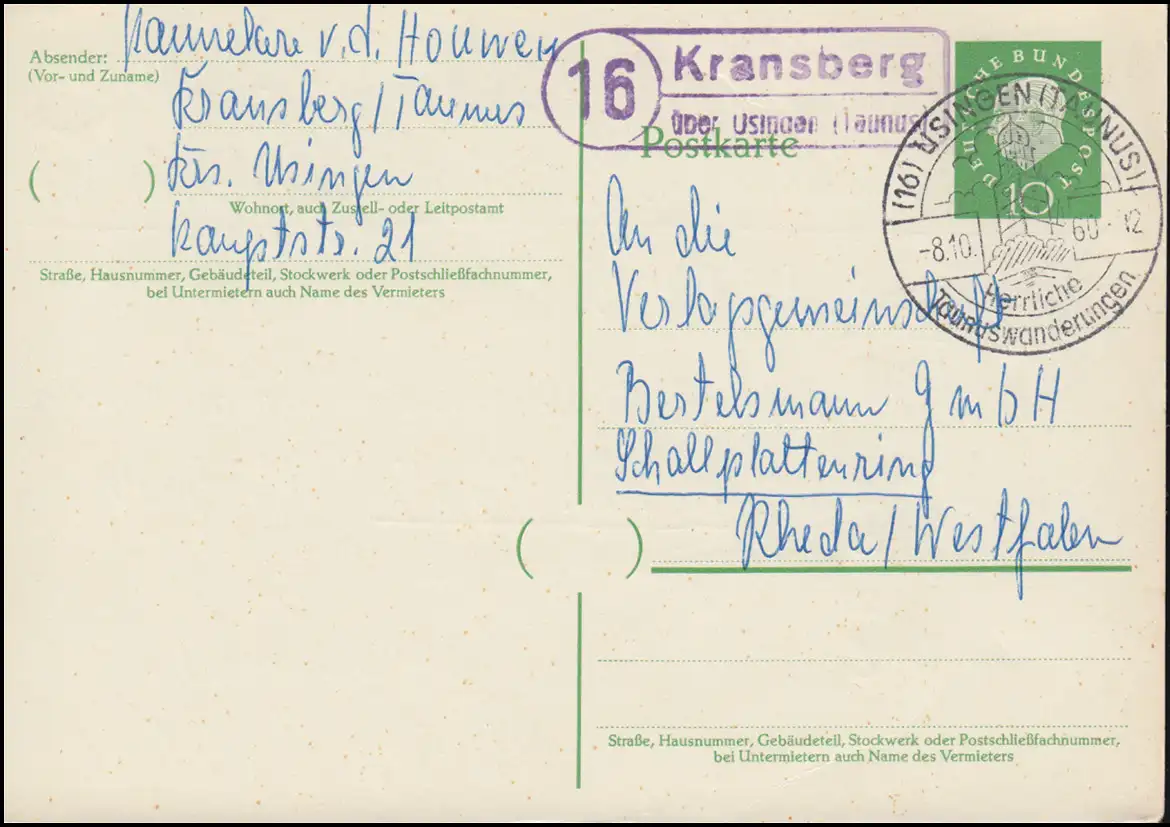 Absender:
(Vor- und Zuname)
Hannelore v. d. Houwen
Kransberg/Taunus
Krs. Usingen
Wohnort, auch Zustell- oder Leitpostamt
Hauptstr. 21
Straße, Hausnummer, Gebäudeteil, Stockwerk oder Postschließfachnummer,
bei Untermietern auch Name des Vermieters
16
Kransberg
über Usingen (Taunus)
Postkarte
DEUTSCHE BUNDESPOST
10
(16) USINGEN (TAUNUS)
-8.10. 60-12
Herrliche
Taunuswanderungen
An die
Verlagsgemeinschaft
Bertelsmann GmbH
Schallplattenring
Rheda/Westfalen
Straße, Hausnummer, Gebäudeteil, Stockwerk oder Postschließfachnummer,
bei Untermietern auch Name des Vermieters